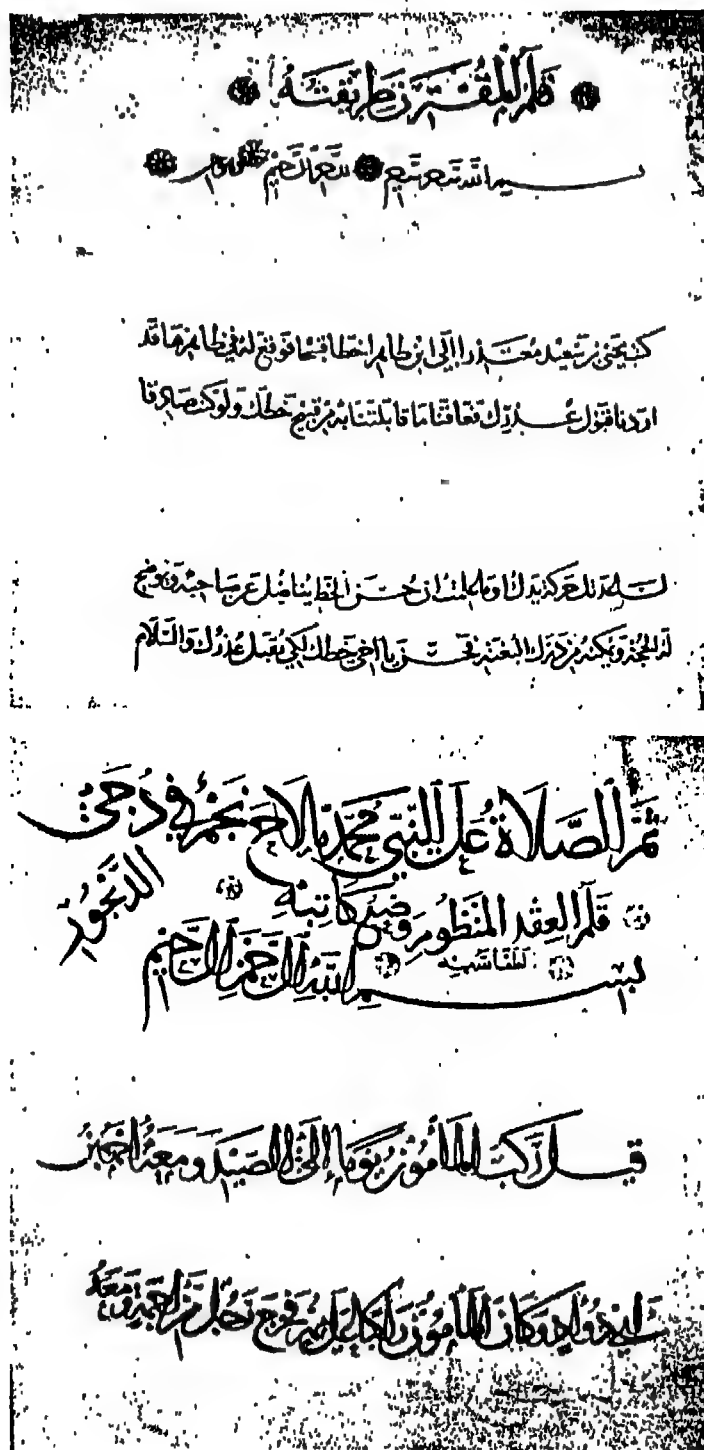 قلم المقترن طريقته
بسم الله الرحمن الرحيم
كتب يحيى بن سعيد معتذرا إلى ابن طاهر خطا قبيحا فوقع له في ظاهرها قد
اردنا قبول عذرك فعاقنا ما قابلتنا به من قبيح خطك ولو كنت صادقا
لساعدتك حركة يدك اوما علمت ان حسن الخط يناضل عن صاحبه ويوضح
له الحجة ويمكنه من درك البغية فحسن يا اخي خطك لكي يقبل عذرك والسلام
ثم الصلاة على النبي محمد ما لاح نجم في دجى
الديجور
قلم العقد المنظوم وضع كاتبه
بسم الله الرحمن الرحيم
قيل ركب المأمون يوما إلى الصيد ومعه احمد بن
ابي دواد وكان المأمون راكبا على فرجع رجل من ومعه